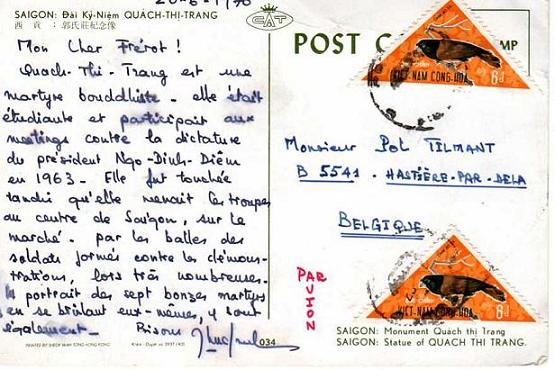 20-6-1970
SAIGON: Đài Kỷ-Niệm QUÁCH-THỊ-TRANG
西貢：郭氏莊紀念像
CAT
Mon Cher Frérot !
Quach-Thi-Trang est une
martyre bouddhiste - elle était
étudiante et participait aux
meetings contre la dictature
du président Ngo-Dinh-Diêm
en 1963. Elle fut touchée
tandis qu'elle menait les troupes
au centre de Saïgon, sur le
marché - par les balles des
soldats formés contre les démons-
trations, lors très nombreuses.
le portrait des sept bonzes martyrs
en se brûlant eux-mêmes, y sont
également - Bisous
POST C MP
VIỆT-NAM CỘNG-HÒA 6đ
Monsieur Pol TILMANT
B 5541 - HASTIÈRE-PAR-DELA
BELGIQUE
PAR
VION
VIỆT-NAM CỘNG-HÒA 6đ
SAIGON: Monument Quách thị Trang
SAIGON: Statue of QUACH THI TRANG.
034